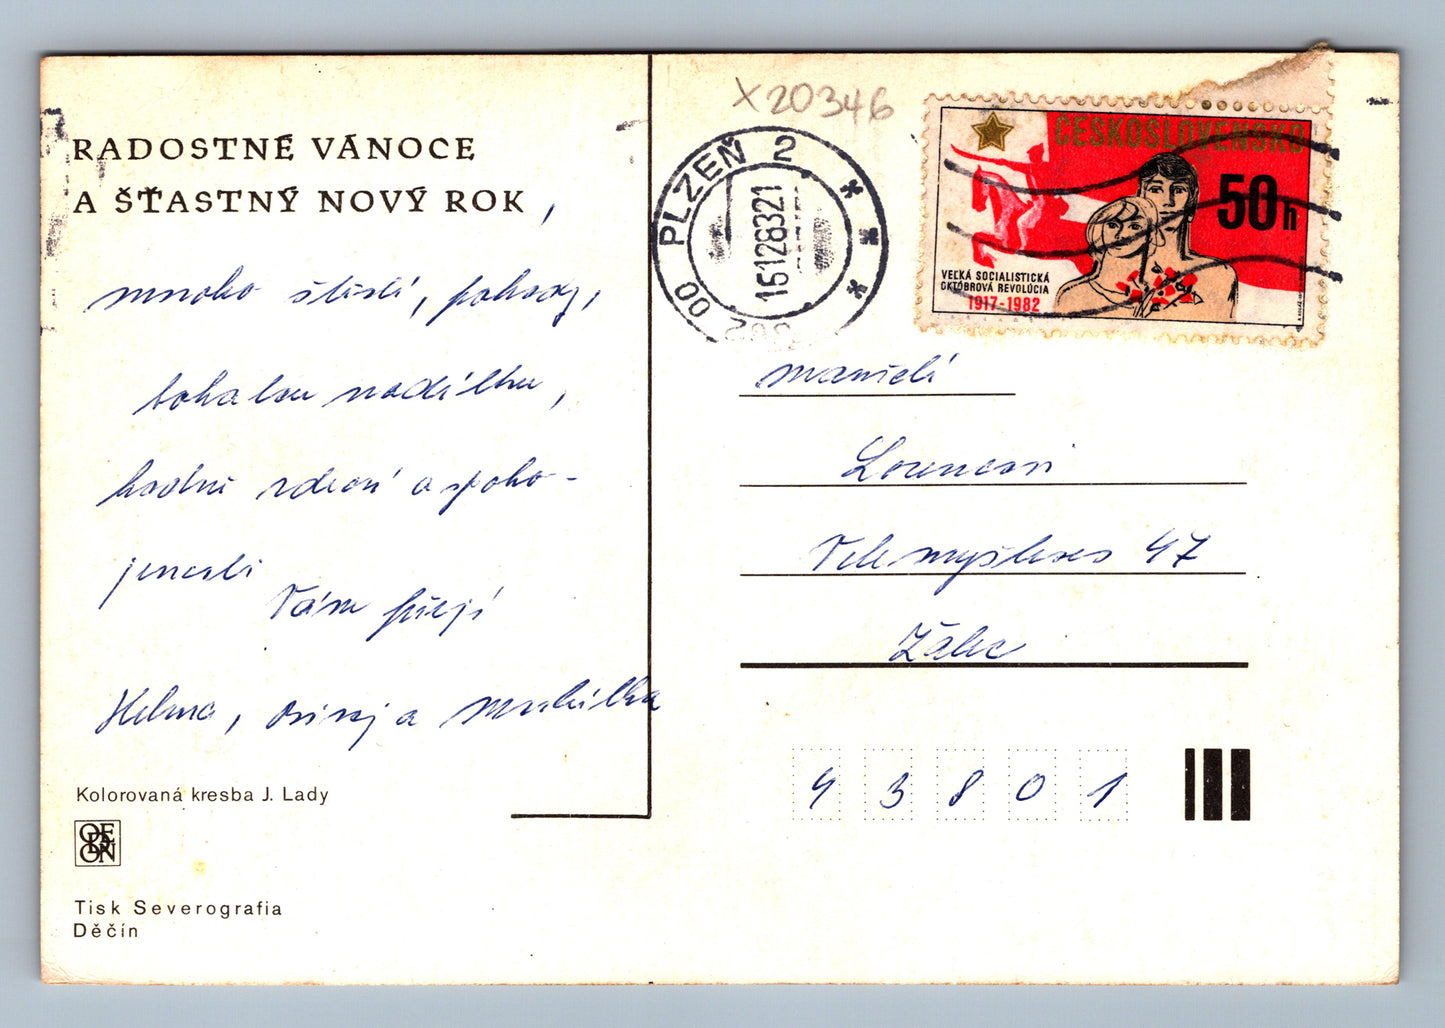 RADOSTNÉ VÁNOCE
A ŠŤASTNÝ NOVÝ ROK,
mnoho štěstí, pohody,
bohatou nadílku,
hodně zdraví a spoko-
jenosti
Vám přejí
Helena, a
Kolorovaná kresba J. Lady
ODEON
Tisk Severografia
Děčín
X20346
00 PLZEŇ 2
16128321
ČESKOSLOVENSKO
50h
VEĽKÁ SOCIALISTICKÁ
OKTÓBROVÁ REVOLÚCIA
1917-1982
manželé
Lounovi
Velemyšleves 47
Žatec
43801